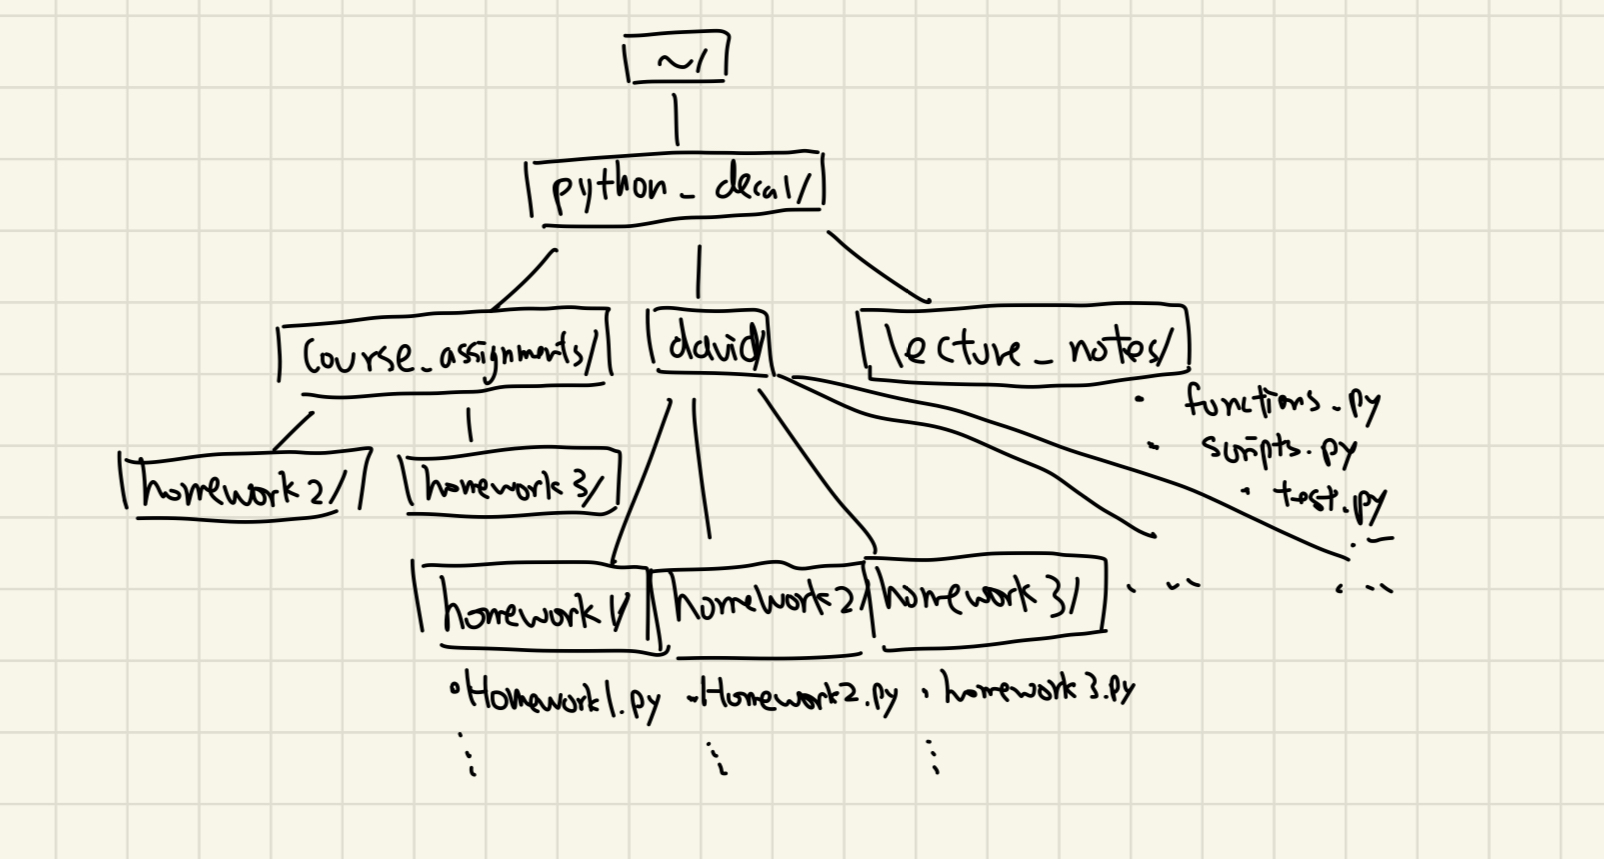 ~/
python_decal/
course_assignments/
david/
lecture_notes/
functions.py
scripts.py
test.py
homework2/
homework3/
homework1/
homework2/
homework3/
Homework1.py
Homework2.py
homework3.py